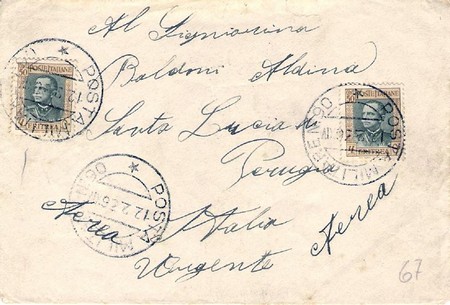 Al Signorina
Baldoni Aldina
Santa Lucia di
Perugia
Italia
Aerea
Urgente
Aerea
POSTE ITALIANE
POSTE ITALIANE
POSTA MILITARE N. 90
POSTA MILITARE N. 90
POSTA MILITARE N. 90
12.2.36
67